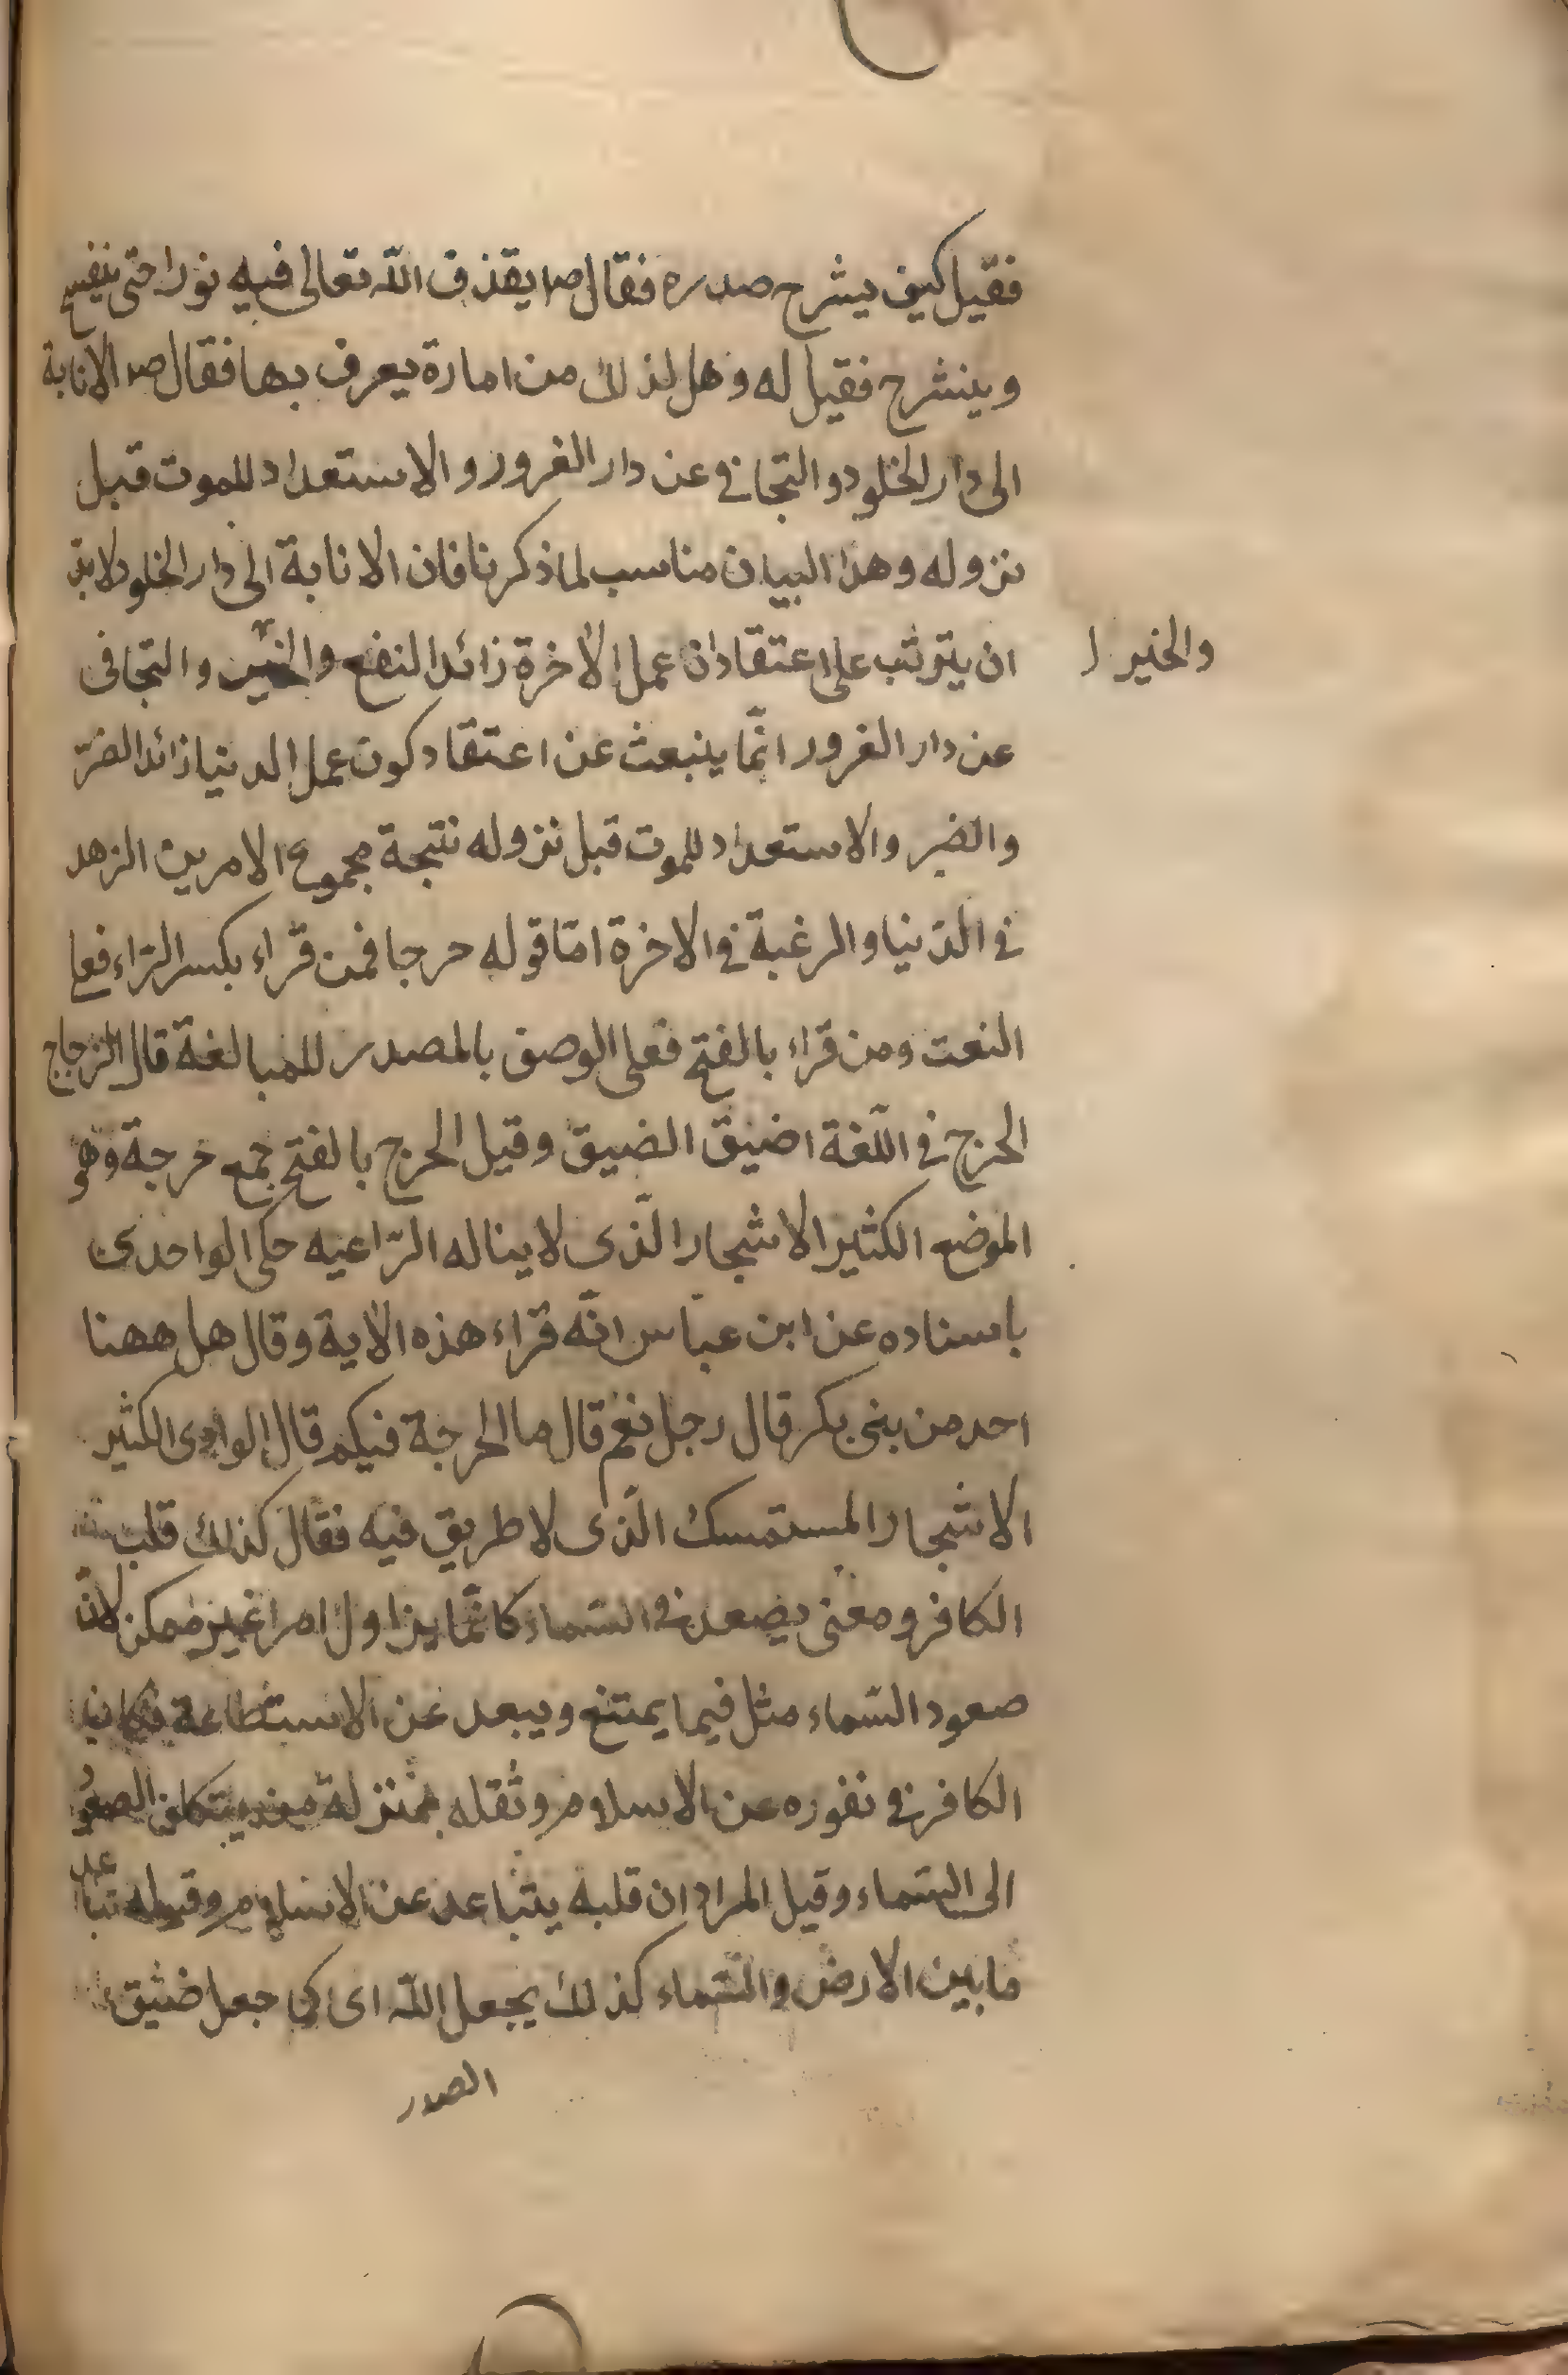 فقيل كيف يشرح صدره فقال ص يقذف الله تعالى فيه نورا حتى ينفسح
وينشرح فقيل له وهل لذلك من امارة يعرف بها فقال ص الانابة
الى دار الخلود والتجافي عن دار الغرور والاستعداد للموت قبل
نزوله وهذا البيان مناسب لما ذكرنا فان الانابة الى دار الخلود لابد
ان يترتب على اعتقاد ان عمل الاخرة زائد النفع والخير والتجافى
والخير
عن دار الغرور انّما ينبعث عن اعتقاد كون عمل الدنيا زائد الضرّ
والضير والاستعداد للموت قبل نزوله نتيجة مجموع الامرين الزهد
في الدّنيا والرغبة في الاخرة امّا قوله حرجا فمن قراء بكسر الرّاء فعلى
النعت ومن قراء بالفتح فعلى الوصف بالمصدر للمبالغة قال الزجاج
الحرج في اللّغة اضيق الضيق وقيل الحرج بالفتح جمع حرجة وهو
الموضع الكثير الاشجار الّذى لا يناله الرّاعيه حكى الواحدى
باسناده عن ابن عبّاس انّه قراء هذه الاية وقال هل ههنا
احد من بنى بكر قال رجل نعم قال ما الحرجة فيكم قال الوادى الكثير
الاشجار المستمسك الّذى لا طريق فيه فقال كذلك قلب
الكافر ومعنى يصعد في السّماء كانّما يزاول امرا غير ممكن لانّ
صعود السّماء مثل فيما يمتنع ويبعد عن الاستطاعة فكان
الكافر في نفوره عن الاسلام وثقله بمنزلة من يتكلف الصعود
الى السّماء وقيل المراد ان قلبه يتباعد عن الاسلام وقبوله تباعد
ما بين الارض والسّماء كذلك يجعل الله اى كما جعل ضيق
الصدر